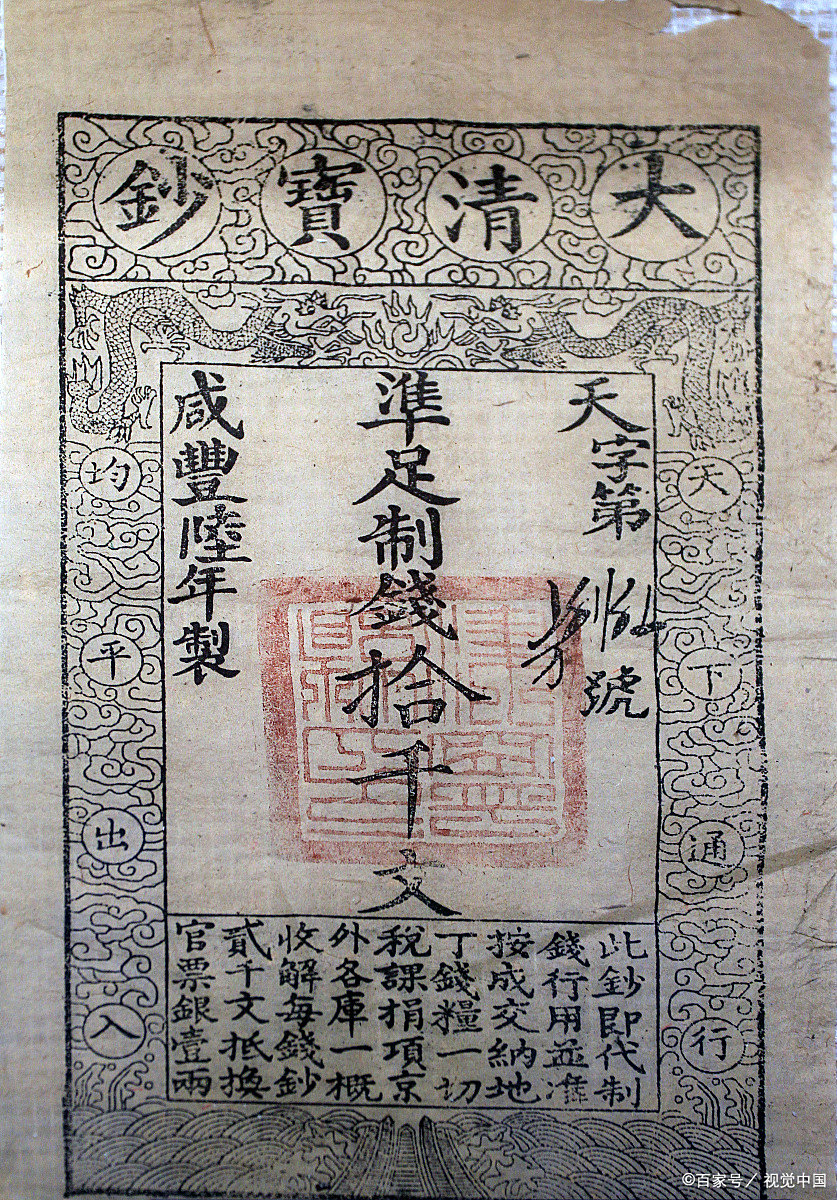 大清寶鈔
天字第
號
準足制錢拾千文
咸豐陸年製
天下通行
均平出入
此鈔即代制
錢行用並准
按成交納地
丁錢糧一切
稅課捐項京
外各庫一概
收解每錢鈔
貳千文抵換
官票銀壹兩
©百家号／视觉中国